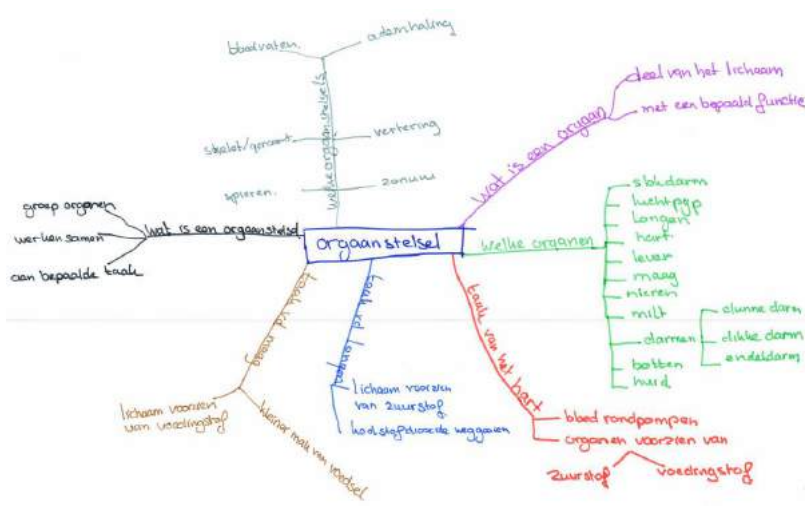 orgaanstelsel
welke orgaanstelsels
bloedvaten
ademhaling
skelet/geraamt
vertering
spieren
zenuw
wat is een orgaan
deel van het lichaam
met een bepaald functie
welke organen
slokdarm
luchtpijp
longen
hart
lever
maag
nieren
milt
darmen
dunne darm
dikke darm
endeldarm
botten
huid
taak van het hart
bloed rondpompen
organen voorzien van
zuurstof
voedingstof
taak vd longen
lichaam voorzien
van zuurstof
koolstofdioxide weggooien
taak vd maag
lichaam voorzien
van voedingstof
kleiner maken van voedsel
wat is een orgaanstelsel
groep organen
werken samen
aan bepaalde taak